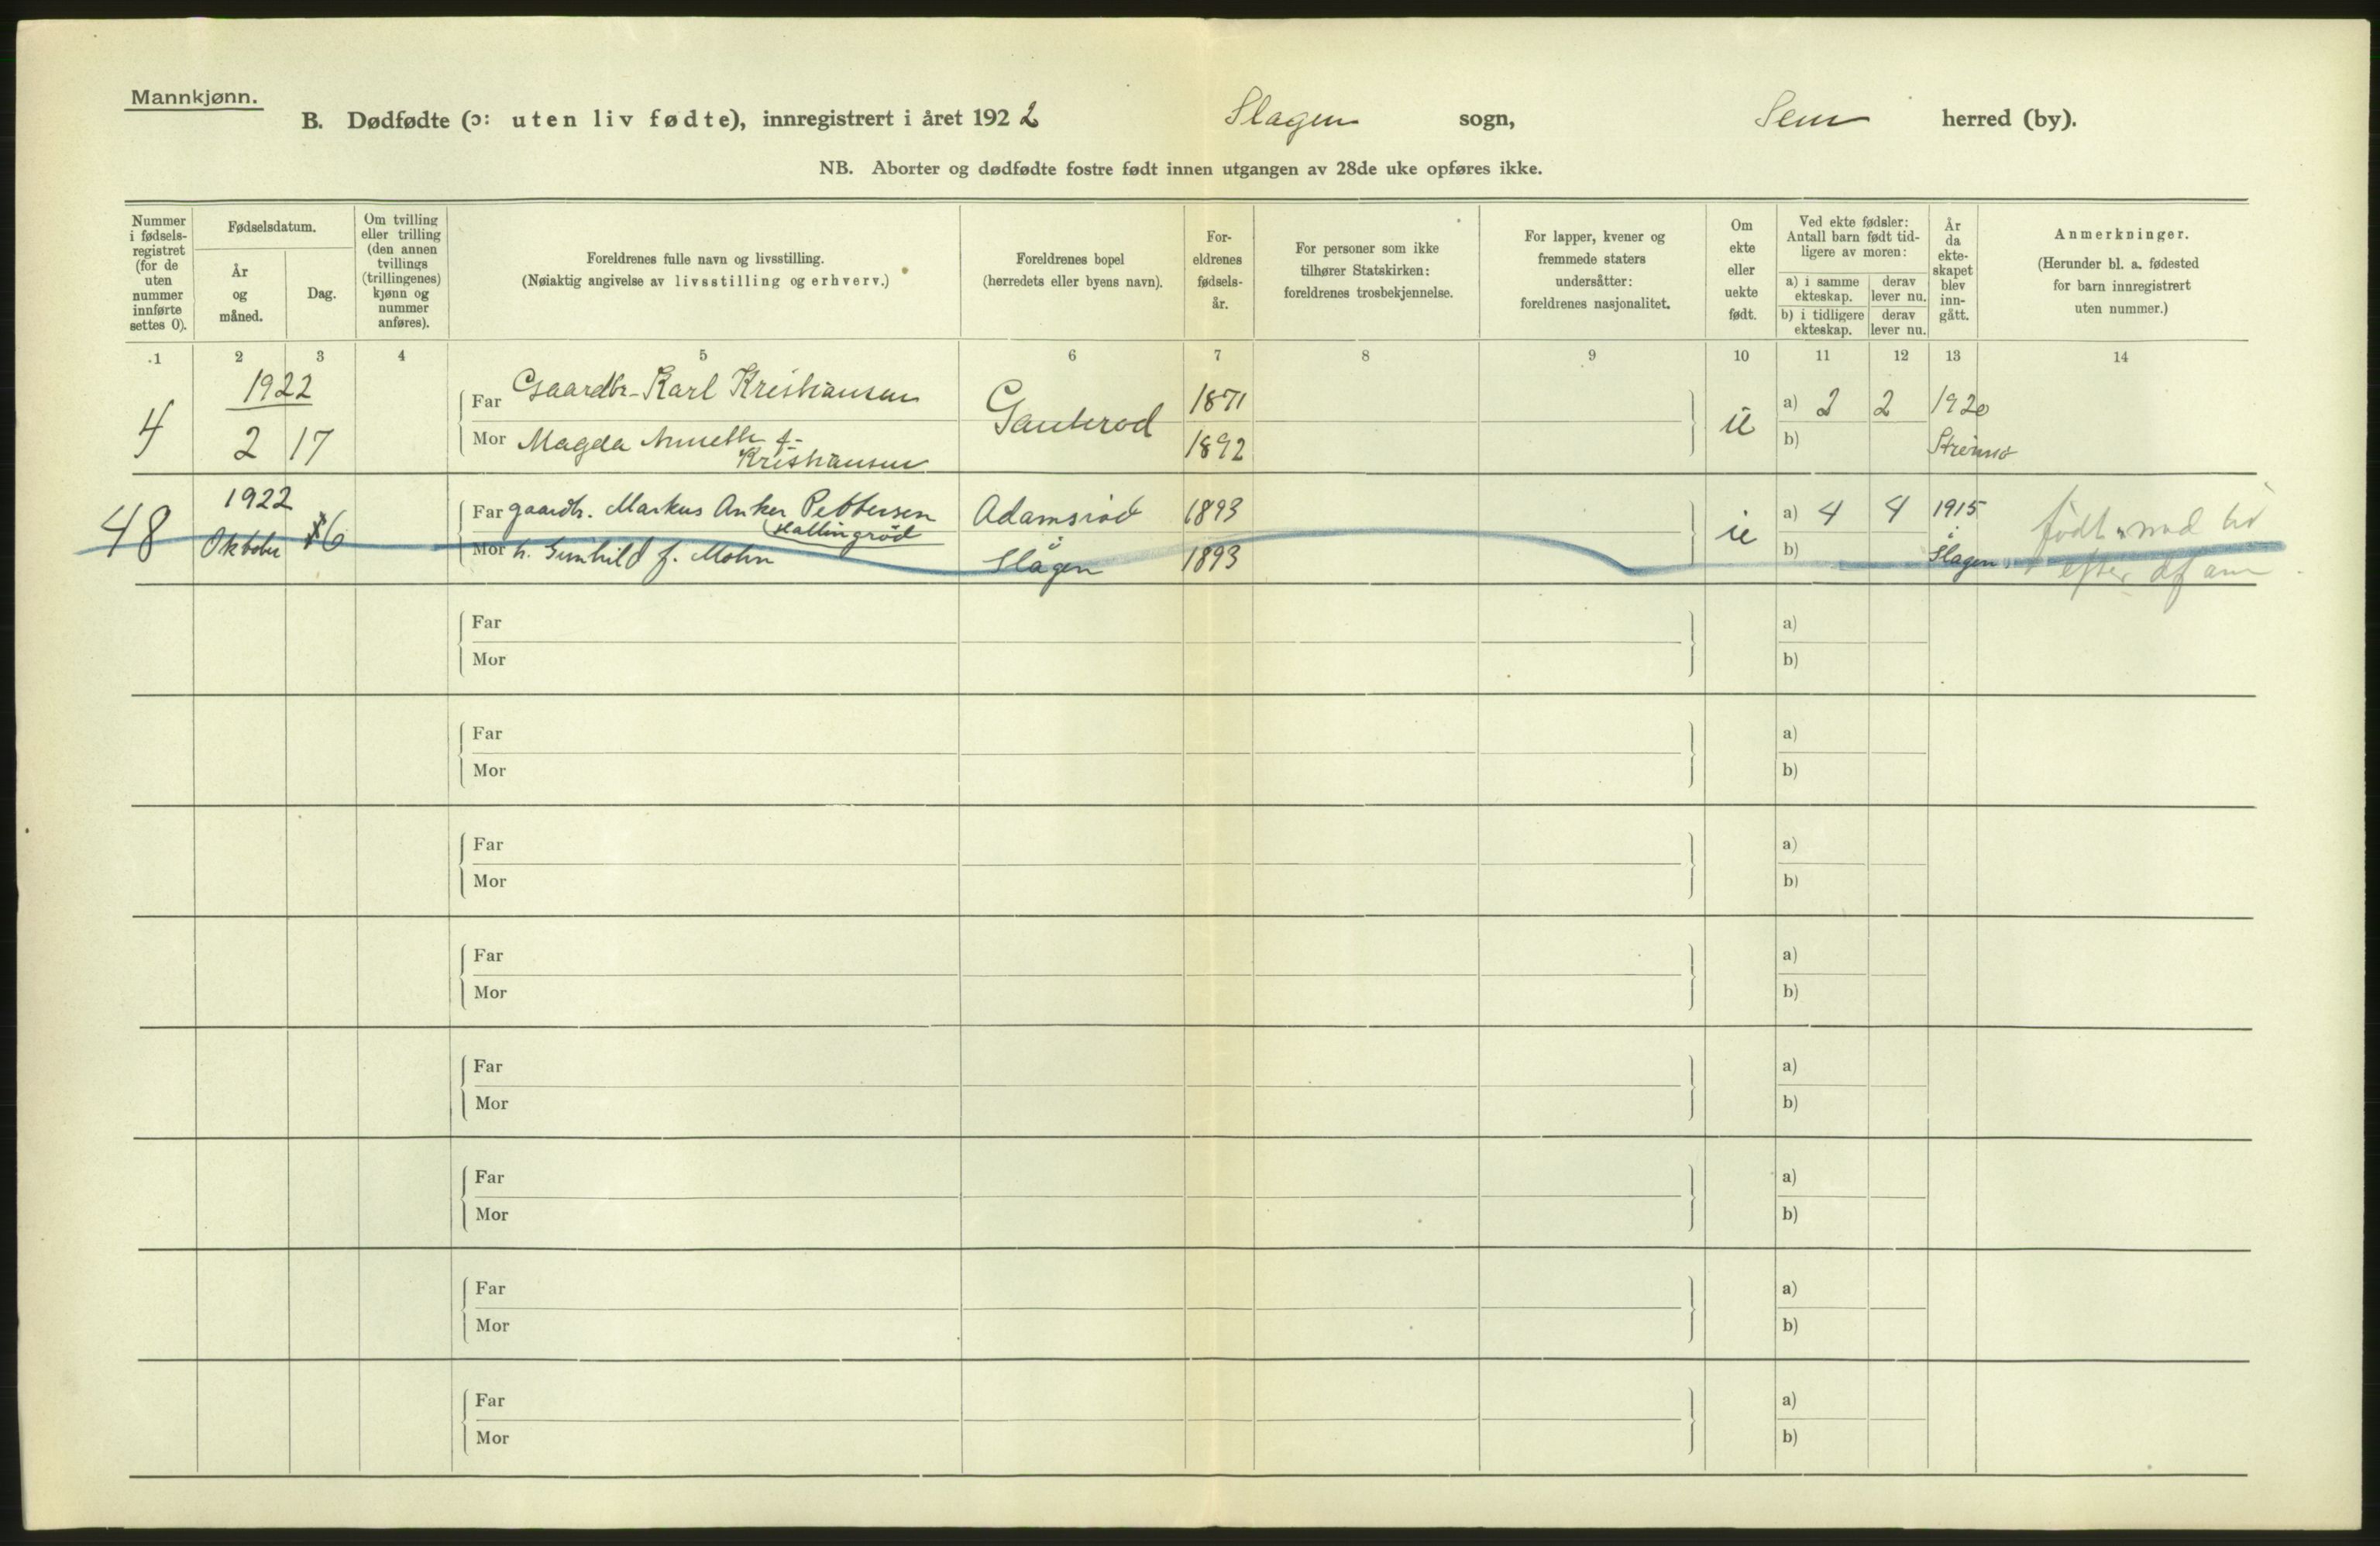 Mannkjønn.
B. Dødfødte (ɔ: uten liv fødte), innregistrert i året 1922 Slagen sogn, Sem herred (by).
NB. Aborter og dødfødte fostre født innen utgangen av 28de uke opføres ikke.
Nummer i fødsels-registret (for de uten nummer innførte settes 0).
Fødselsdatum.
År og måned.
Dag.
Om tvilling eller trilling (den annen tvillings (trillingenes) kjønn og nummer anføres).
Foreldrenes fulle navn og livsstilling.
(Nøiaktig angivelse av livsstilling og erhverv.)
Foreldrenes bopel
(herredets eller byens navn).
For-eldrenes fødsels-år.
For personer som ikke tilhører Statskirken: foreldrenes trosbekjennelse.
For lapper, kvener og fremmede staters undersåtter: foreldrenes nasjonalitet.
Om ekte eller uekte født.
Ved ekte fødsler: Antall barn født tid-ligere av moren:
a) i samme ekteskap. derav lever nu.
b) i tidligere ekteskap. derav lever nu.
År da ekte-skapet blev inn-gått.
Anmerkninger.
(Herunder bl. a. fødested for barn innregistrert uten nummer.)
1 2 3 4 5 6 7 8 9 10 11 12 13 14
1922
4 2 17
Far Gaardbr. Karl Kristiansen
Mor Magda Annette f. Kristiansen
Gauterod
1871
1892
ie
a) 2 2 1920
b)
48 1922
Oktober 16
Far gaardbr. Markus Anker Pettersen
(Hallingrød
Mor h. Gunhild f. Mohn
Adamsrød
i Slagen
1893
1893
ie
a) 4 4 1915
b) i Slagen
født med liv
efter
Far
Mor
a)
b)
Far
Mor
a)
b)
Far
Mor
a)
b)
Far
Mor
a)
b)
Far
Mor
a)
b)
Far
Mor
a)
b)
Far
Mor
a)
b)
Far
Mor
a)
b)